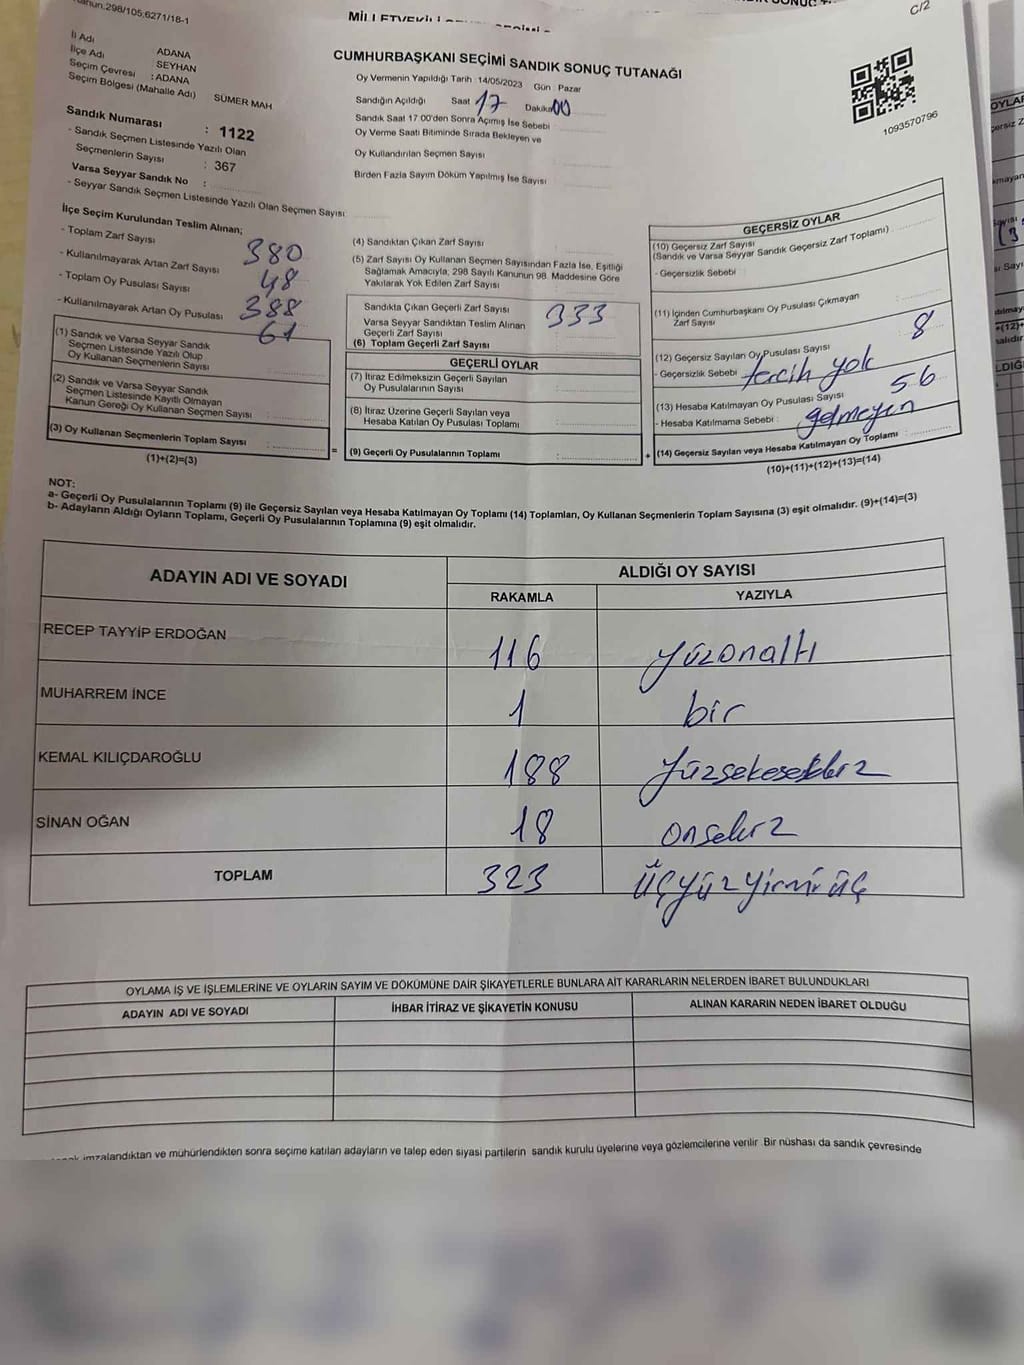 298/105;6271/18-1
C/2
CUMHURBAŞKANI SEÇİMİ SANDIK SONUÇ TUTANAĞI
İl Adı ADANA
İlçe Adı SEYHAN
Seçim Çevresi : ADANA
Seçim Bölgesi (Mahalle Adı) SÜMER MAH
Sandık Numarası : 1122
- Sandık Seçmen Listesinde Yazılı Olan
Seçmenlerin Sayısı : 367
Varsa Seyyar Sandık No :
- Seyyar Sandık Seçmen Listesinde Yazılı Olan Seçmen Sayısı
Oy Vermenin Yapıldığı Tarih : 14/05/2023 Gün : Pazar
Sandığın Açıldığı Saat 17 Dakika 00
Sandık Saat 17:00'den Sonra Açımış İse Sebebi
Oy Verme Saati Bitiminde Sırada Bekleyen ve
Oy Kullandırılan Seçmen Sayısı
Birden Fazla Sayım Döküm Yapılmış İse Sayısı
1093570796
İlçe Seçim Kurulundan Teslim Alınan;
- Toplam Zarf Sayısı 380
- Kullanılmayarak Artan Zarf Sayısı 48
- Toplam Oy Pusulası Sayısı 388
- Kullanılmayarak Artan Oy Pusulası 61
(1) Sandık ve Varsa Seyyar Sandık
Seçmen Listesinde Yazılı Olup
Oy Kullanan Seçmenlerin Sayısı
(2) Sandık ve Varsa Seyyar Sandık
Seçmen Listesinde Kayıtlı Olmayan
Kanun Gereği Oy Kullanan Seçmen Sayısı
(3) Oy Kullanan Seçmenlerin Toplam Sayısı :
(1)+(2)=(3)
(4) Sandıktan Çıkan Zarf Sayısı
(5) Zarf Sayısı Oy Kullanan Seçmen Sayısından Fazla İse, Eşitliği
Sağlamak Amacıyla, 298 Sayılı Kanunun 98. Maddesine Göre
Yakılarak Yok Edilen Zarf Sayısı
Sandıkta Çıkan Geçerli Zarf Sayısı 333
Varsa Seyyar Sandıktan Teslim Alınan
Geçerli Zarf Sayısı
(6) Toplam Geçerli Zarf Sayısı
GEÇERLİ OYLAR
(7) İtiraz Edilmeksizin Geçerli Sayılan
Oy Pusulalarının Sayısı
(8) İtiraz Üzerine Geçerli Sayılan veya
Hesaba Katılan Oy Pusulası Toplamı
= (9) Geçerli Oy Pusulalarının Toplamı
GEÇERSİZ OYLAR
(10) Geçersiz Zarf Sayısı
(Sandık ve Varsa Seyyar Sandık Geçersiz Zarf Toplamı)
- Geçersizlik Sebebi
(11) İçinden Cumhurbaşkanı Oy Pusulası Çıkmayan
Zarf Sayısı
(12) Geçersiz Sayılan Oy Pusulası Sayısı 8
- Geçersizlik Sebebi tercih yok
(13) Hesaba Katılmayan Oy Pusulası Sayısı 56
- Hesaba Katılmama Sebebi : gelmeyen
+ (14) Geçersiz Sayılan veya Hesaba Katılmayan Oy Toplamı
(10)+(11)+(12)+(13)=(14)
NOT:
a- Geçerli Oy Pusulalarının Toplamı (9) ile Geçersiz Sayılan veya Hesaba Katılmayan Oy Toplamı (14) Toplamları, Oy Kullanan Seçmenlerin Toplam Sayısına (3) eşit olmalıdır. (9)+(14)=(3)
b- Adayların Aldığı Oyların Toplamı, Geçerli Oy Pusulalarının Toplamına (9) eşit olmalıdır.
ADAYIN ADI VE SOYADI ALDIĞI OY SAYISI
RAKAMLA YAZIYLA
RECEP TAYYİP ERDOĞAN 116 yüzonaltı
MUHARREM İNCE 1 bir
KEMAL KILIÇDAROĞLU 188 yüzseksensekiz
SİNAN OĞAN 18 onsekiz
TOPLAM 323 üçyüzyirmiüç
OYLAMA İŞ VE İŞLEMLERİNE VE OYLARIN SAYIM VE DÖKÜMÜNE DAİR ŞİKAYETLERLE BUNLARA AİT KARARLARIN NELERDEN İBARET BULUNDUKLARI
ADAYIN ADI VE SOYADI İHBAR İTİRAZ VE ŞİKAYETİN KONUSU ALINAN KARARIN NEDEN İBARET OLDUĞU
imzalandıktan ve mühürlendikten sonra seçime katılan adayların ve talep eden siyasi partilerin sandık kurulu üyelerine veya gözlemcilerine verilir. Bir nüshası da sandık çevresinde